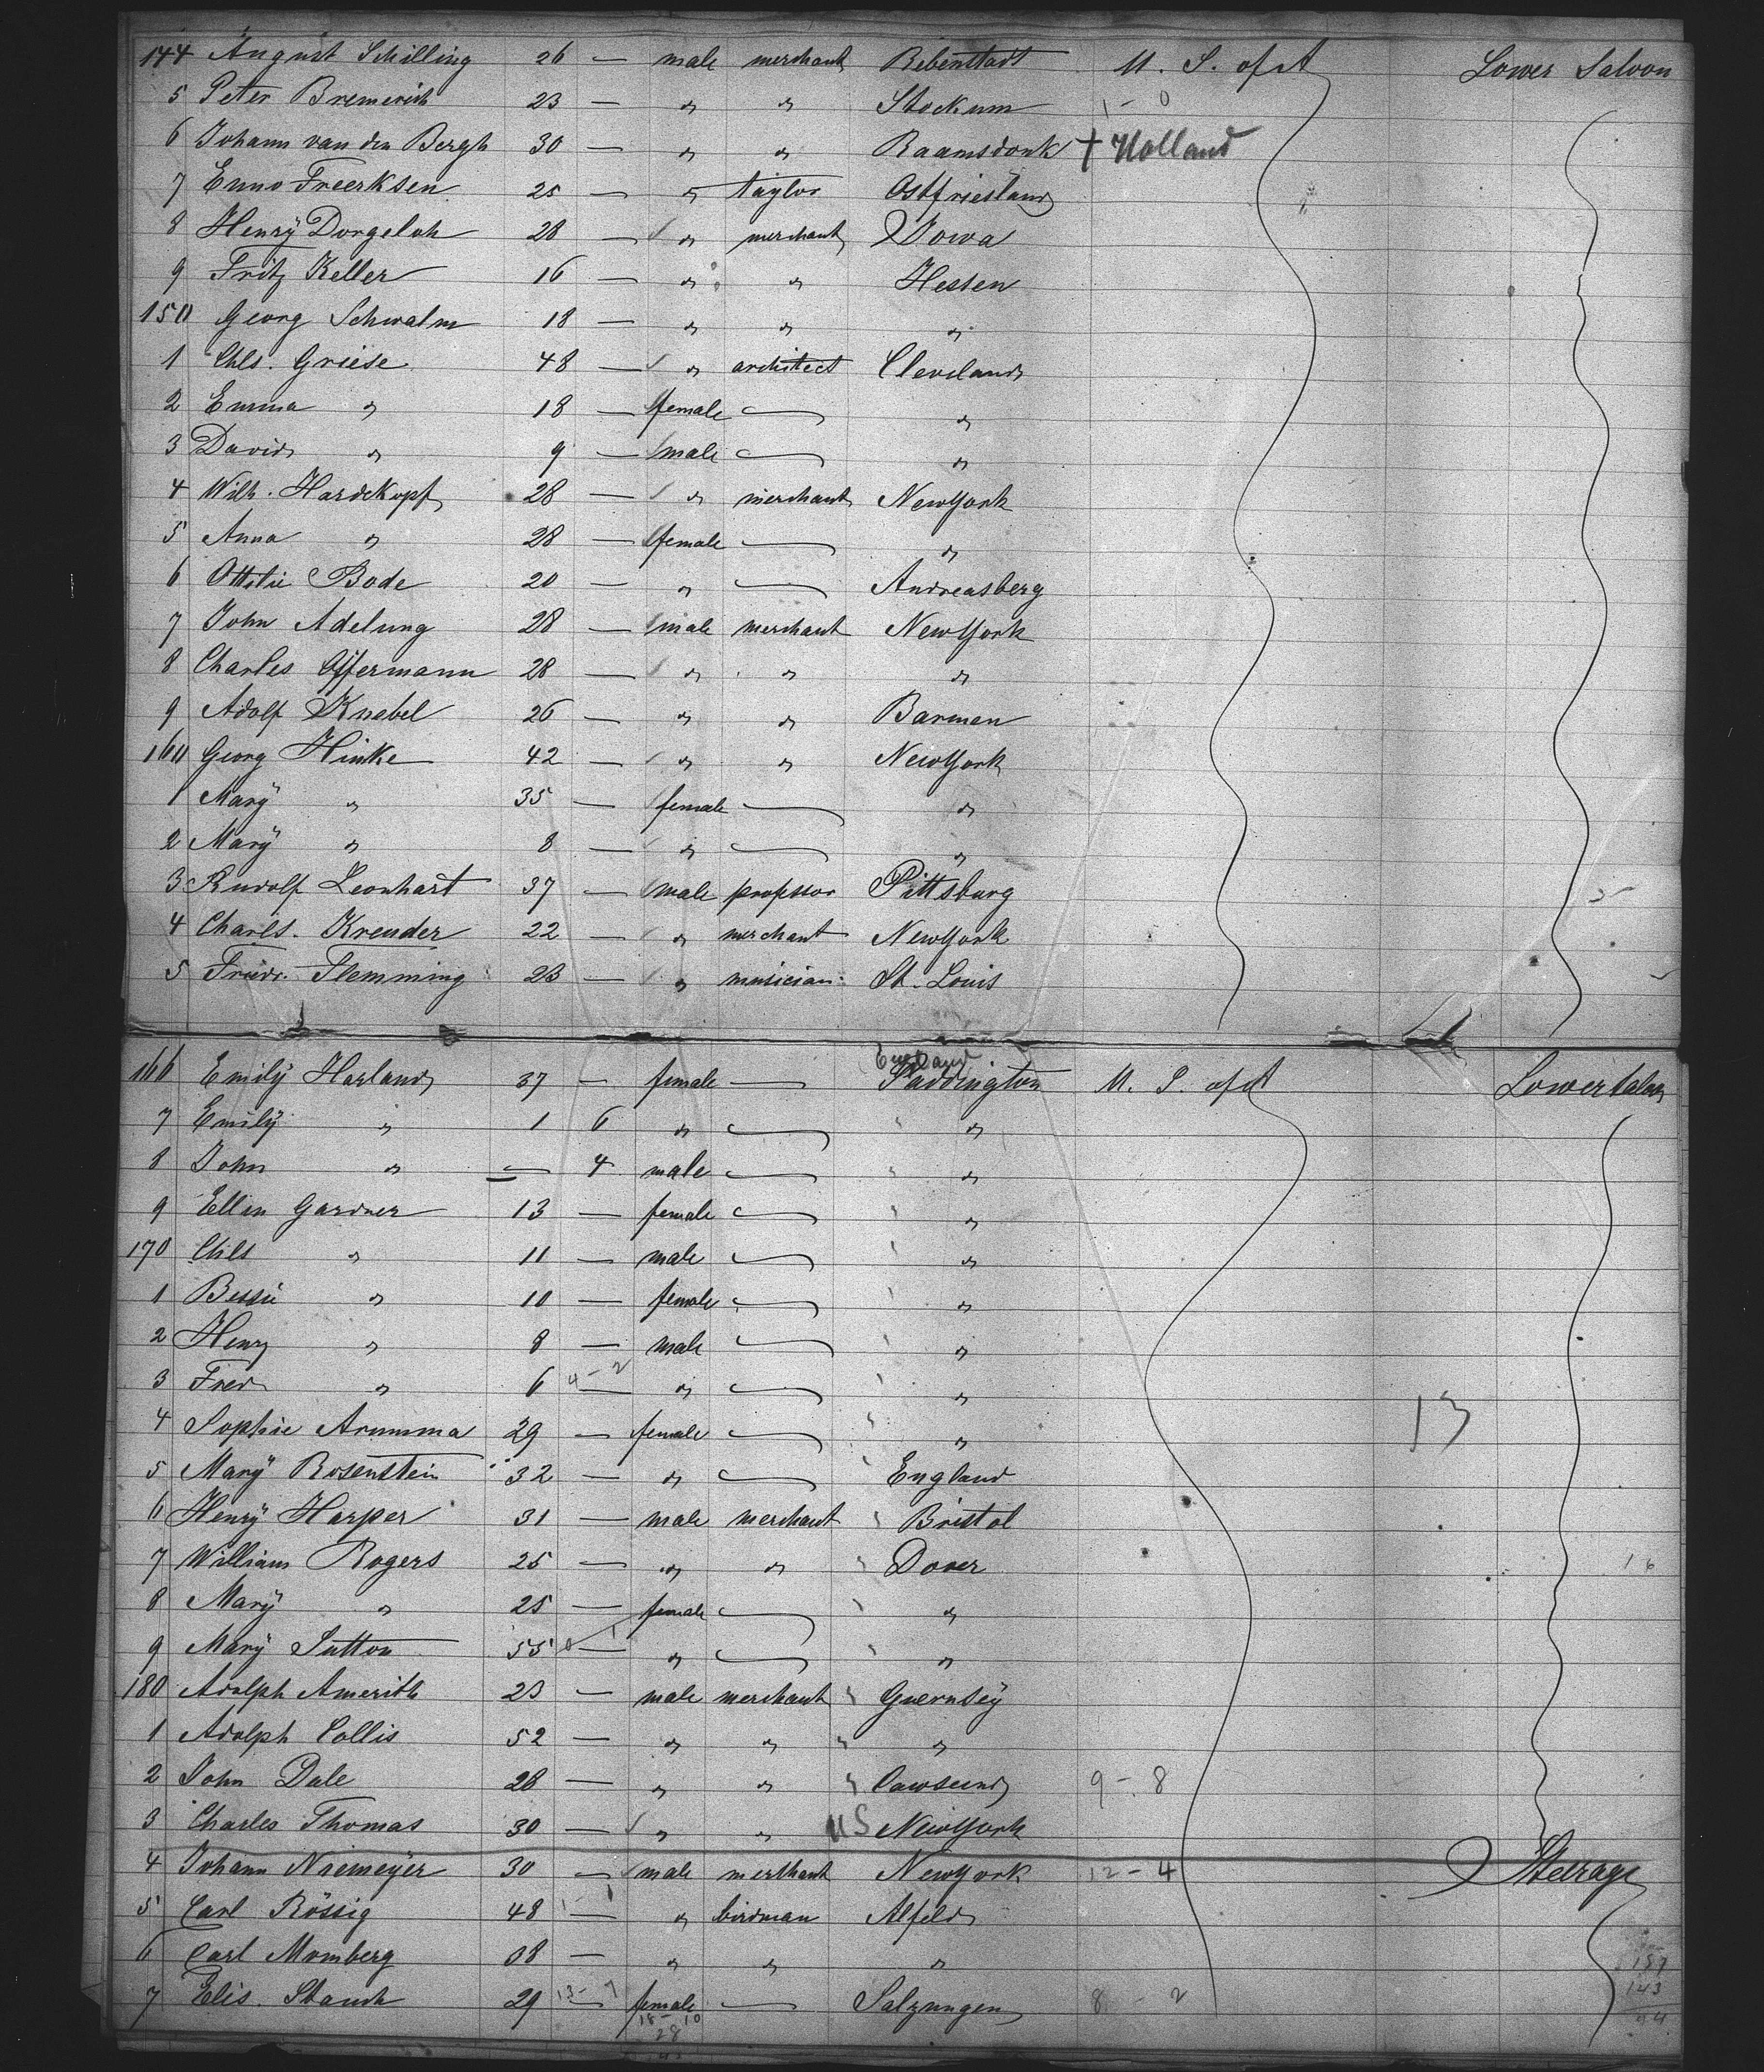 144 August Schilling 26 — male merchant Bibenstadt U. S. of A Lower Saloon
5 Peter Bremerich 23 — " " Stockum 1 - 0
6 Johann van den Bergh 30 — " " Raamsdonk † Holland
7 Enno Freerksen 25 — " taylor Ostfriesland
8 Henry Dorgeloh 28 — " merchant Iowa
9 Fritz Keller 16 — " " Hessen
150 Georg Schwalm 18 — " " "
1 Chls. Griese 48 — " architect Cleveland
2 Emma " 18 — female — "
3 David " 9 — male — "
4 Wilh. Hardekopf 28 — " merchant NewYork
5 Anna " 28 — female — "
6 Ottilie Bode 20 — " — Andreasberg
7 John Adelung 28 — male merchant NewYork
8 Charles Offermann 28 — " " "
9 Adolf Knebel 26 — " " Barmen
160 Georg Hinke 42 — " " NewYork
1 Mary " 35 — female — "
2 Mary " 8 — " — "
3 Rudolf Leonhart 37 — male professor Pittsburg
4 Charls. Kreuder 22 — " merchant NewYork
5 Friedr. Flemming 23 — " musician St. Louis
England
166 Emily Harland 37 — female — Paddington U. S. of A Lower Saloon
7 Emily " 1 6 " — "
8 John " — 4 male — "
9 Ellen Gardner 13 — female — "
170 Chls " 11 — male — "
1 Bessie " 10 — female — "
2 Henry " 8 — male — "
3 Fred " 6 4-2 — " — "
4 Sophie Arumma 29 — female — " 13
5 Mary Rosenstein 32 — " — England
6 Henry Harper 31 — male merchant Bristol
7 William Rogers 25 — " " Dover 16
8 Mary " 25 — female — "
9 Mary Sutton 55 — " — "
180 Adolph Amerith 23 — male merchant Guernsey
1 Adolph Collis 52 — " " "
2 John Dale 28 — " " Cawsand 9 - 8
3 Charles Thomas 30 — " " US NewYork
4 Johann Niemeyer 30 — male merchant NewYork 12 - 4 Steerage
5 Carl Rössig 48 1-1 — " birdman Alfeld
6 Carl Momberg 38 — " " "
7 Elis. Stauch 29 13-7 — female — Salzungen 8 - 2
157
143
94
18-10
28